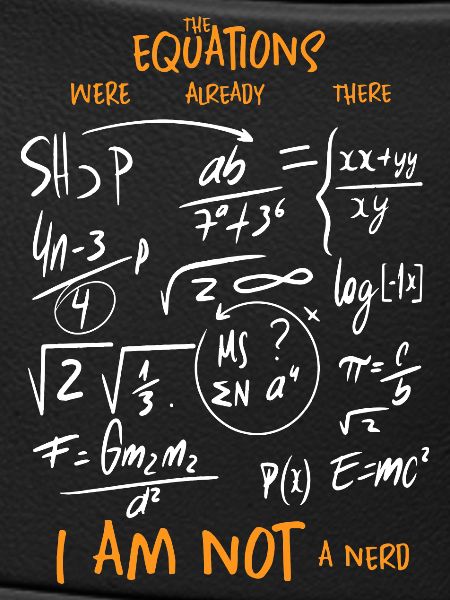 THE
EQUATIONS
WERE ALREADY THERE
SHOP
ab / 7ᵃ+3⁶ = { xx+yy / xy
4n-3 / 4 p
√2 ∞
log[-1x]
√2 √1/3 .
MS ?
ΣN a⁴
x
π = c/b
√2
F = Gm₂m₂ / d²
P(x) E=mc²
I AM NOT A NERD